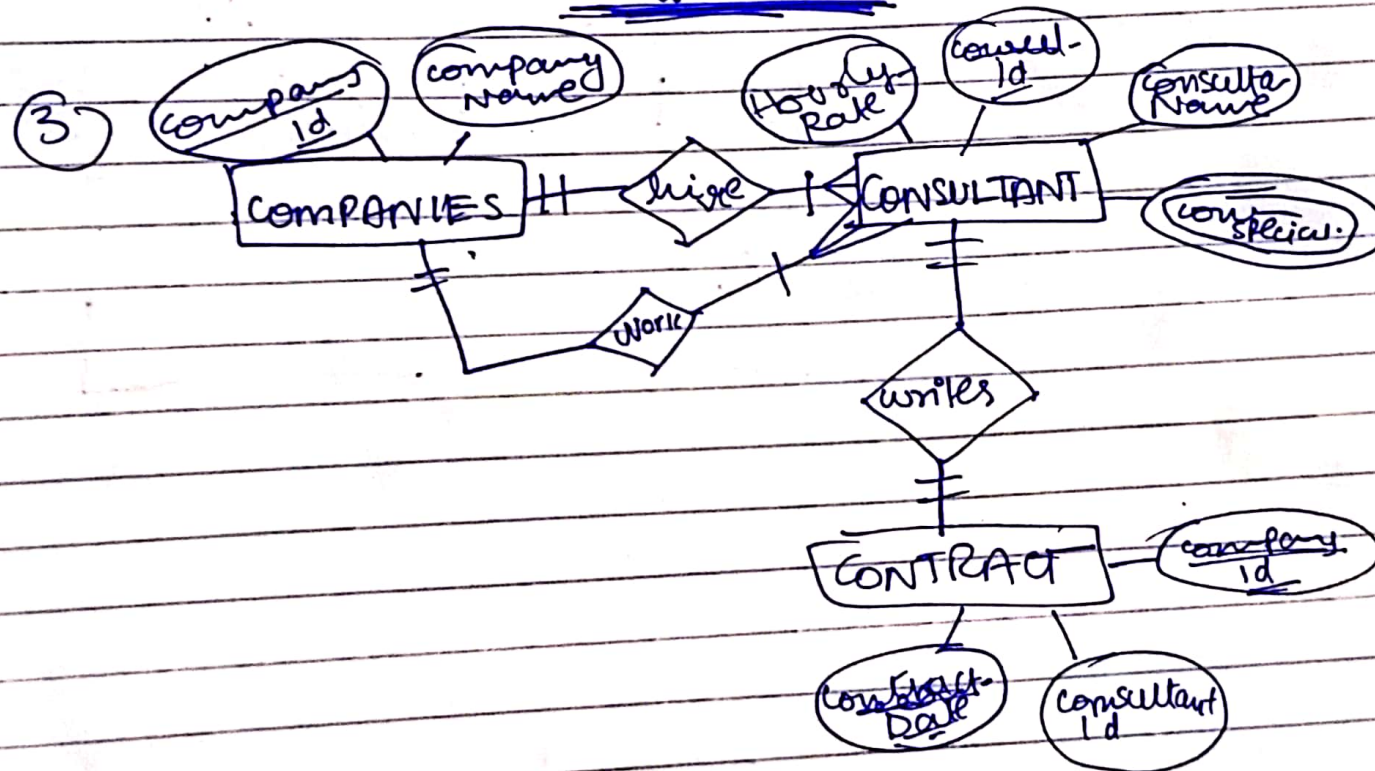 3
company
Id
company
Name
Hourly
Rate
consul-
Id
Consulta
Name
COMPANIES
hire
CONSULTANT
special.
Work
writes
CONTRACT
company
Id
contract-
Date
consultant
Id